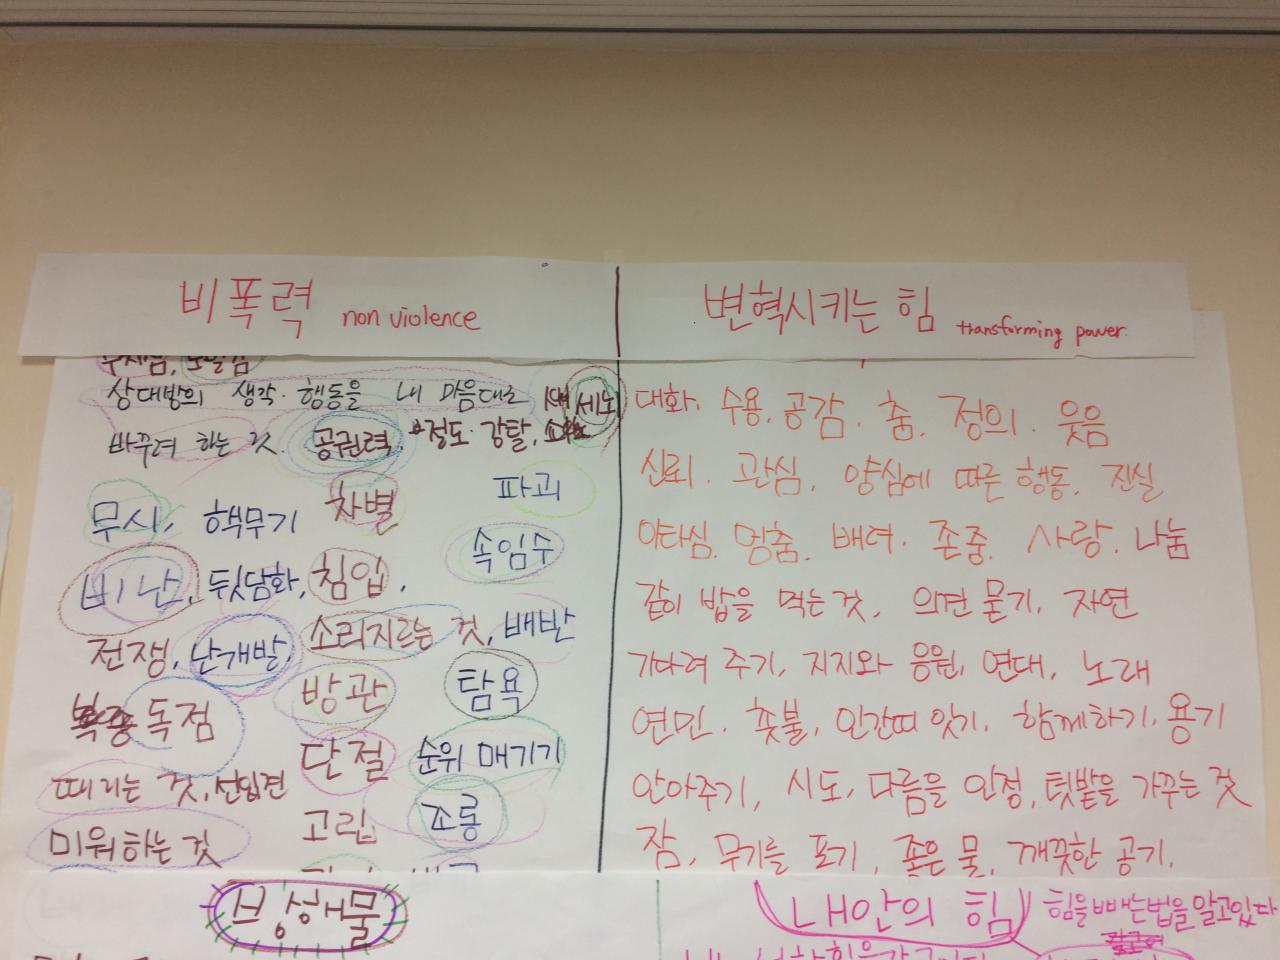 비폭력 non violence
상대방의 생각·행동을 내 마음대로 세뇌
바꾸려 하는 것. 공권력. 절도·강탈,
무시, 핵무기 차별 파괴
비난, 뒷담화, 침입, 속임수
전쟁, 난개발, 소리지르는 것, 배반
독점 방관 탐욕
때리는 것, 선입견 단절 순위 매기기
미워하는 것 고립 조롱
변혁시키는 힘 transforming power.
대화, 수용, 공감, 춤, 정의, 웃음
신뢰, 관심, 양심에 따른 행동, 진실
이타심, 멈춤, 배려, 존중, 사랑, 나눔
같이 밥을 먹는 것, 의견 묻기, 자연
기다려 주기, 지지와 응원, 연대, 노래
연민, 촛불, 인간띠 잇기, 함께하기, 용기
안아주기, 시도, 다름을 인정, 텃밭을 가꾸는 것
잠, 무기를 포기, 좋은 물, 깨끗한 공기.
내안의 힘 힘을 빼는법을 알고있다